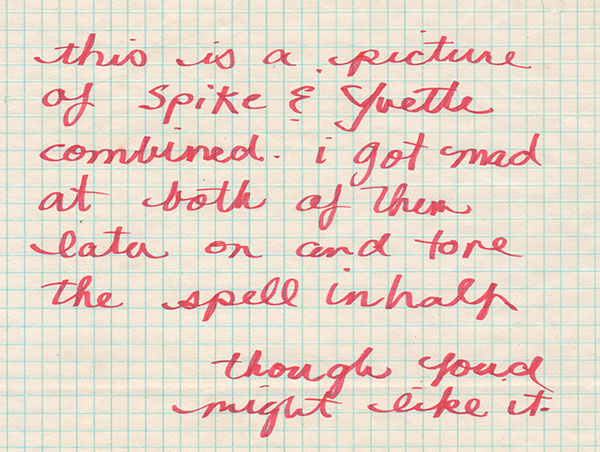 this is a picture
of Spike & Yvette
combined. i got mad
at both of them
later on and tore
the spell in half
though youd
might like it.